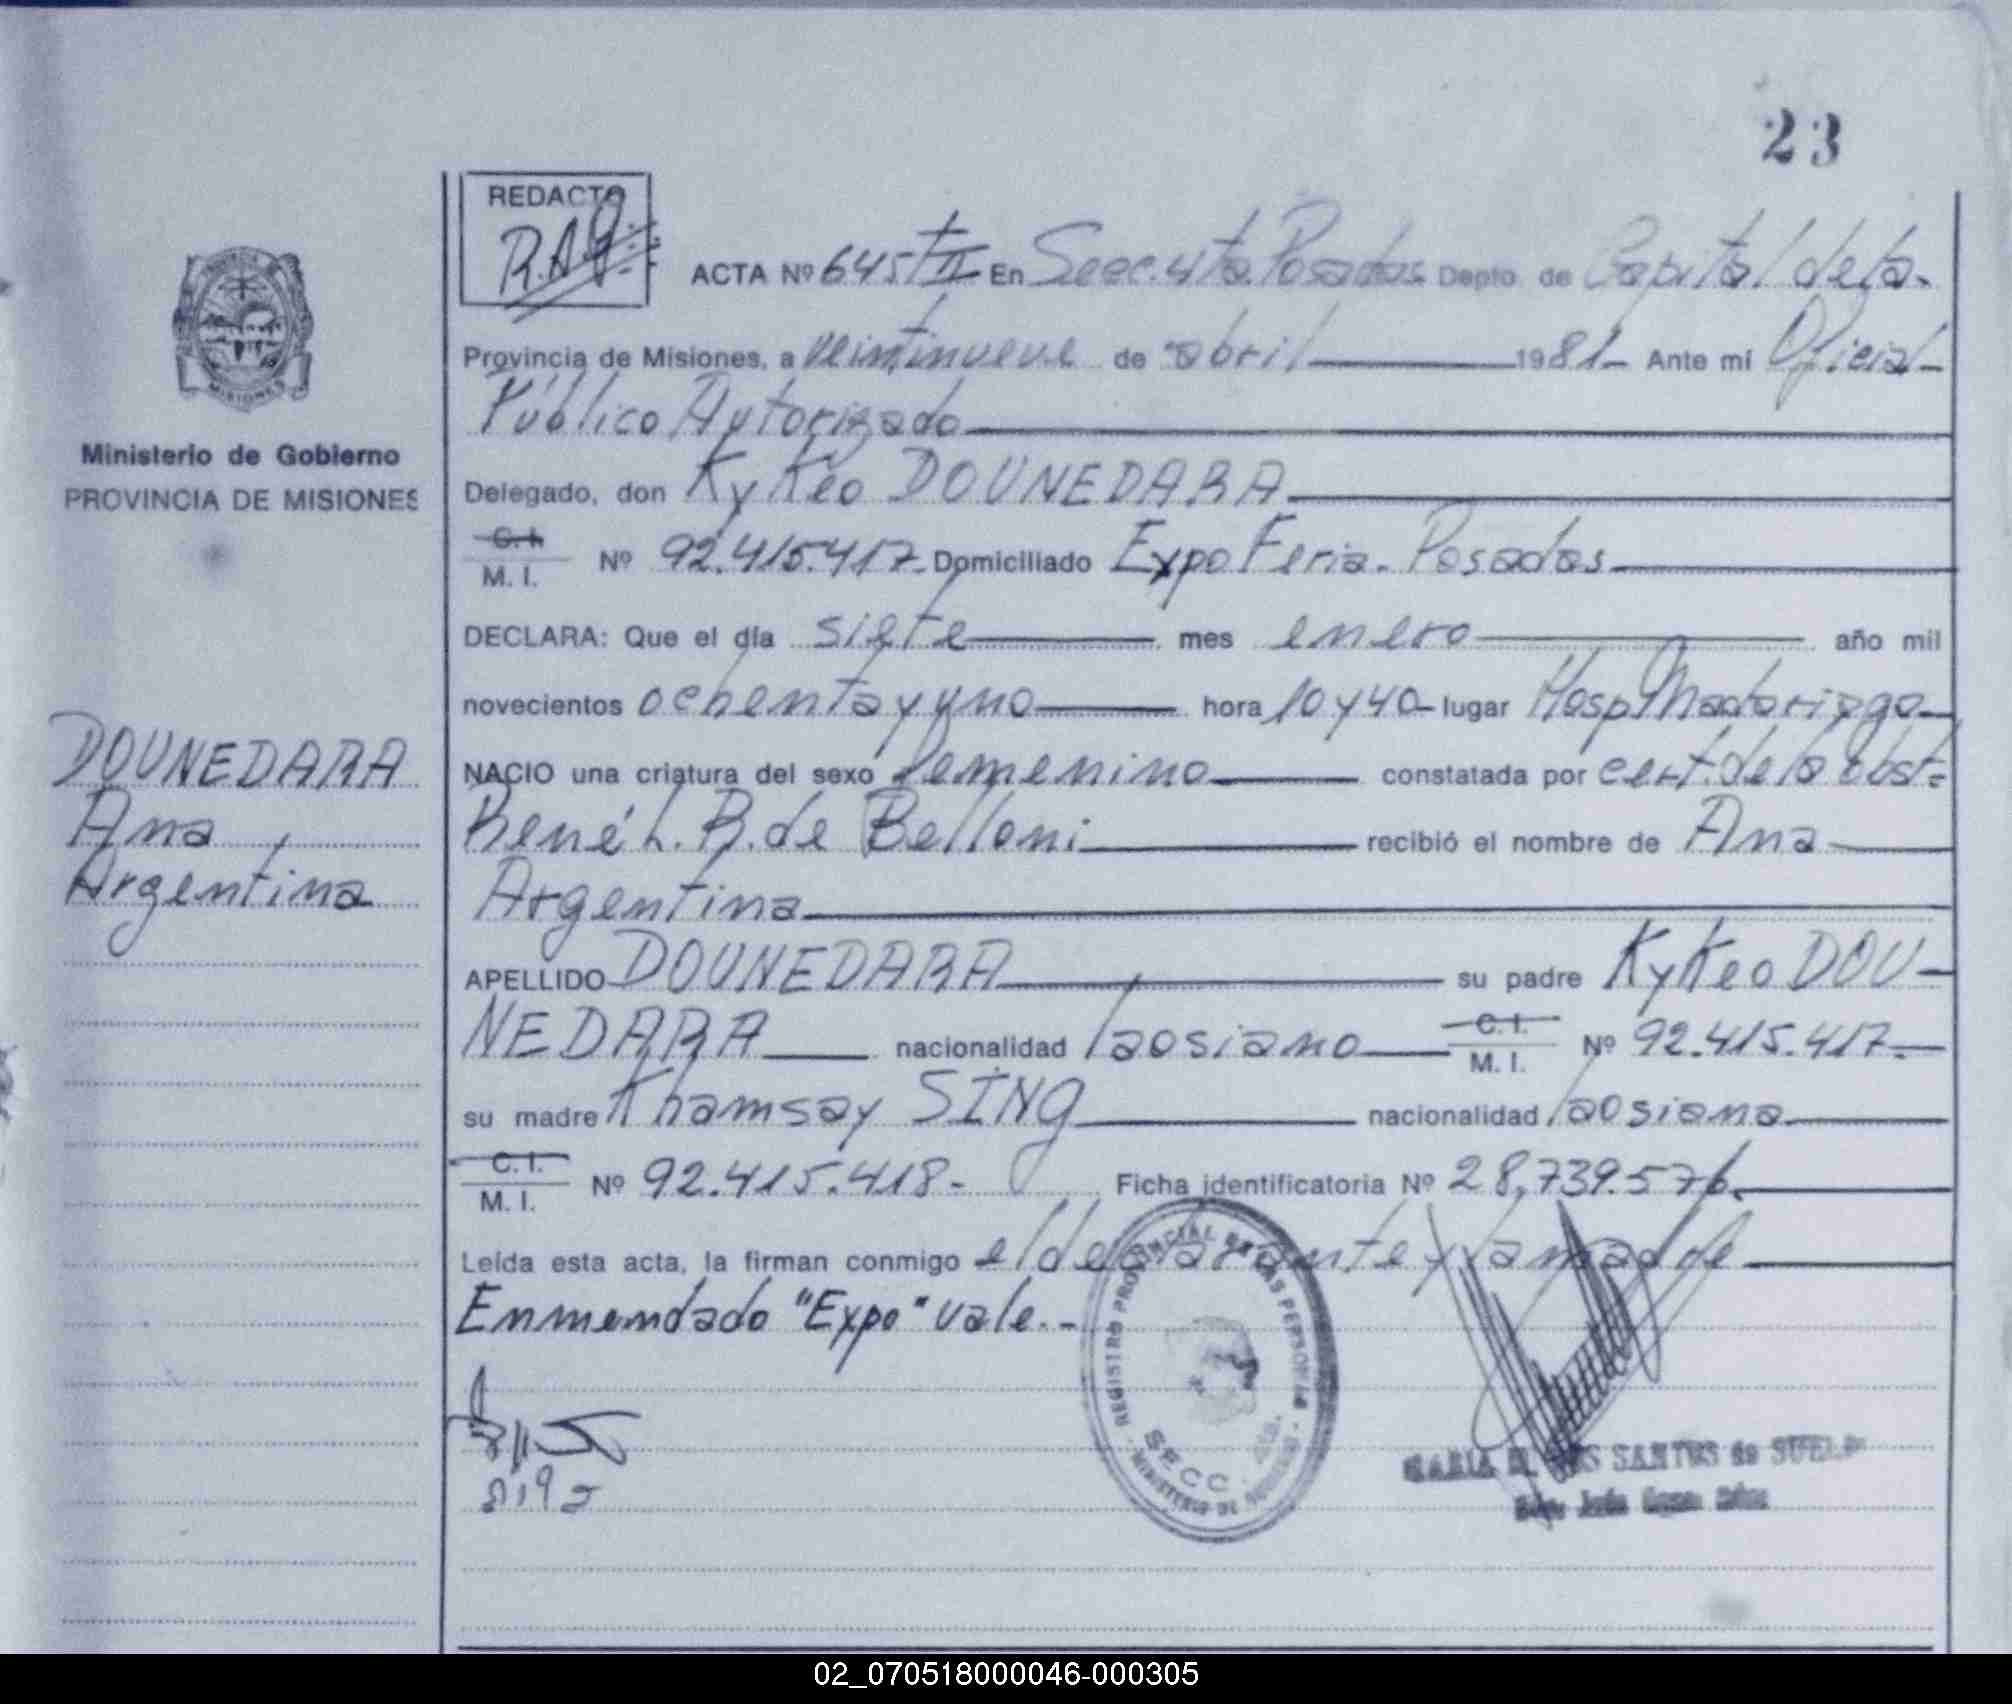 23
REDACTO
R.A.G.
ACTA Nº 645 T II En Secc. 4ta. Posadas Depto. de Capital de la-
Provincia de Misiones, a veintinueve de abril 1981- Ante mí Oficial-
Público Autorizado
Ministerio de Gobierno
PROVINCIA DE MISIONES
Delegado, don KyKeo DOUNEDARA
C. I. M. I. Nº 92.415.417. Domiciliado Expo Feria. Posadas
DECLARA: Que el día siete mes enero año mil
novecientos ochenta y uno hora 10 y 40- lugar Hosp Madariaga-
DOUNEDARA
Ana
Argentina
NACIO una criatura del sexo femenino constatada por cert. de la obst.
René L. B. de Belloni recibió el nombre de Ana
Argentina
APELLIDO DOUNEDARA su padre KyKeo DOU-
NEDARA nacionalidad laosiano C. I. M. I. Nº 92.415.417.-
su madre Khamsay SING nacionalidad laosiana
C. I. M. I. Nº 92.415.418- Ficha identificatoria Nº 28,739.576.
Leída esta acta, la firman conmigo el declarante y la madre
Enmendado "Expo" vale.-
REGISTRO PROVINCIAL DE LAS PERSONAS
SECC. 4ta.
MINISTERIO DE GOBIERNO
MARIA SANTOS de SUELD
MISIONES
02_070518000046-000305